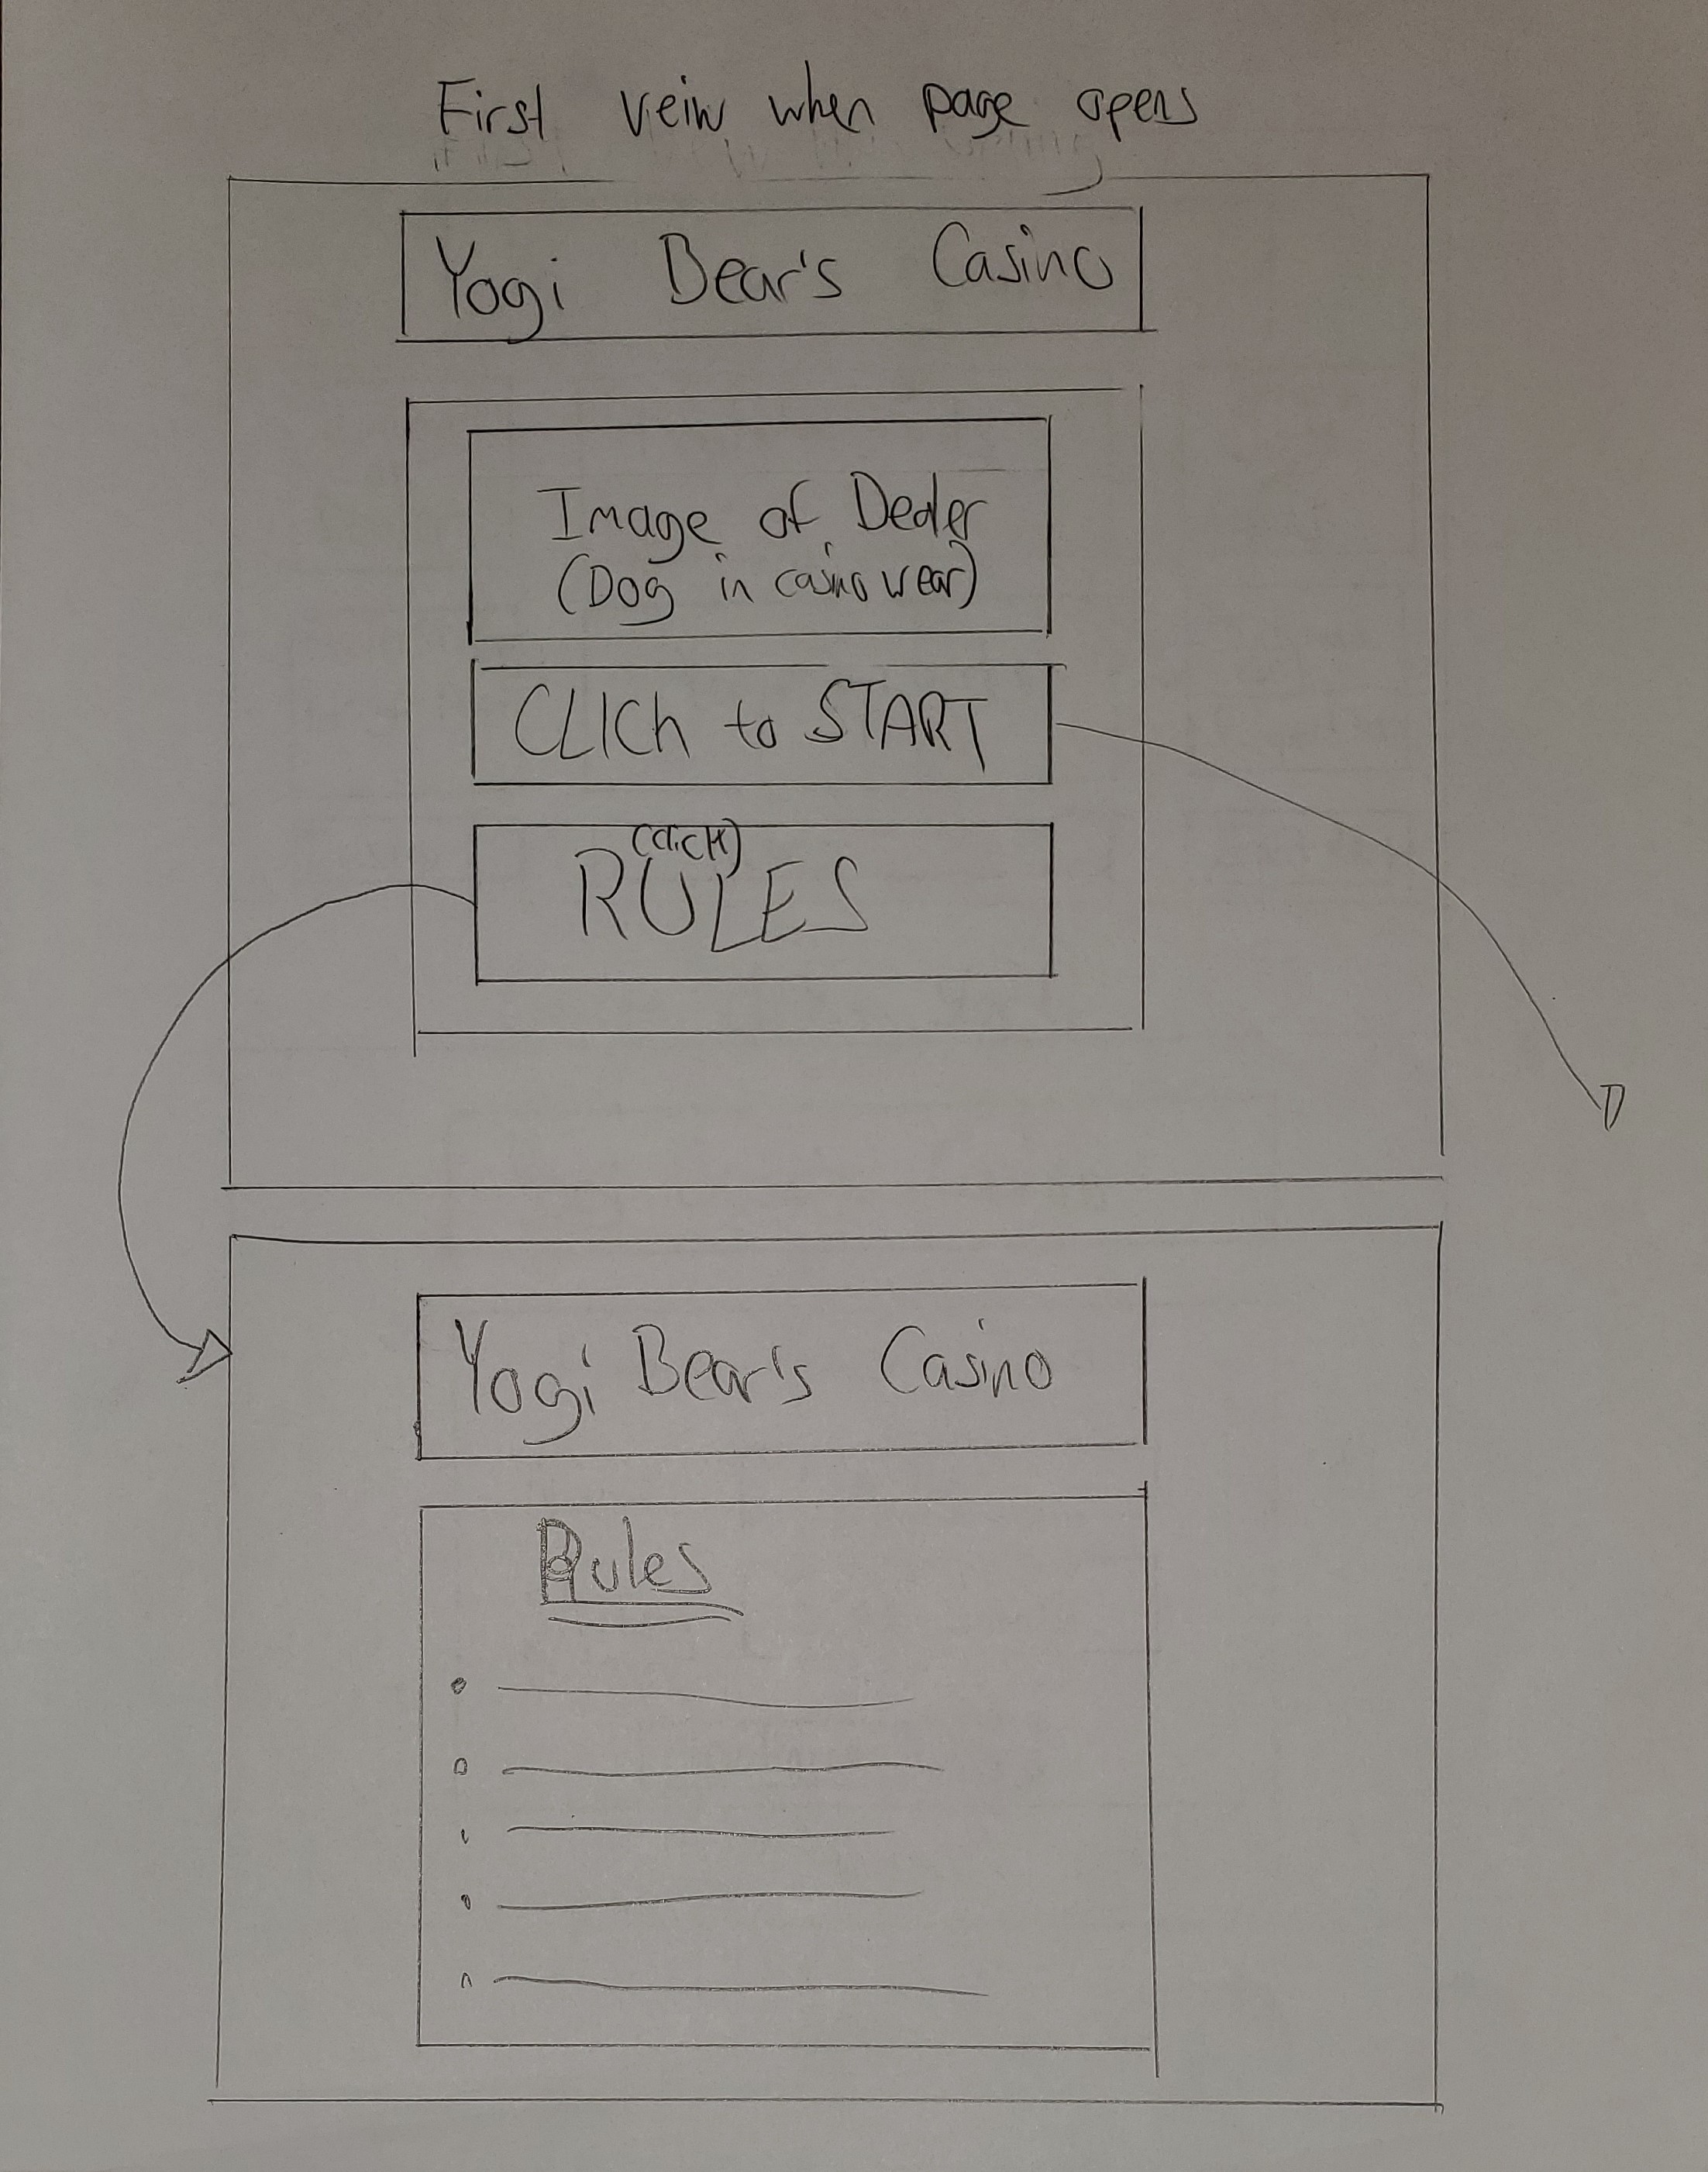 First veiw when page opens
Yogi Bear's Casino
Image of Dealer
(Dog in casino wear)
CLICk to START
(CLICK)
RULES
Yogi Bear's Casino
Rules